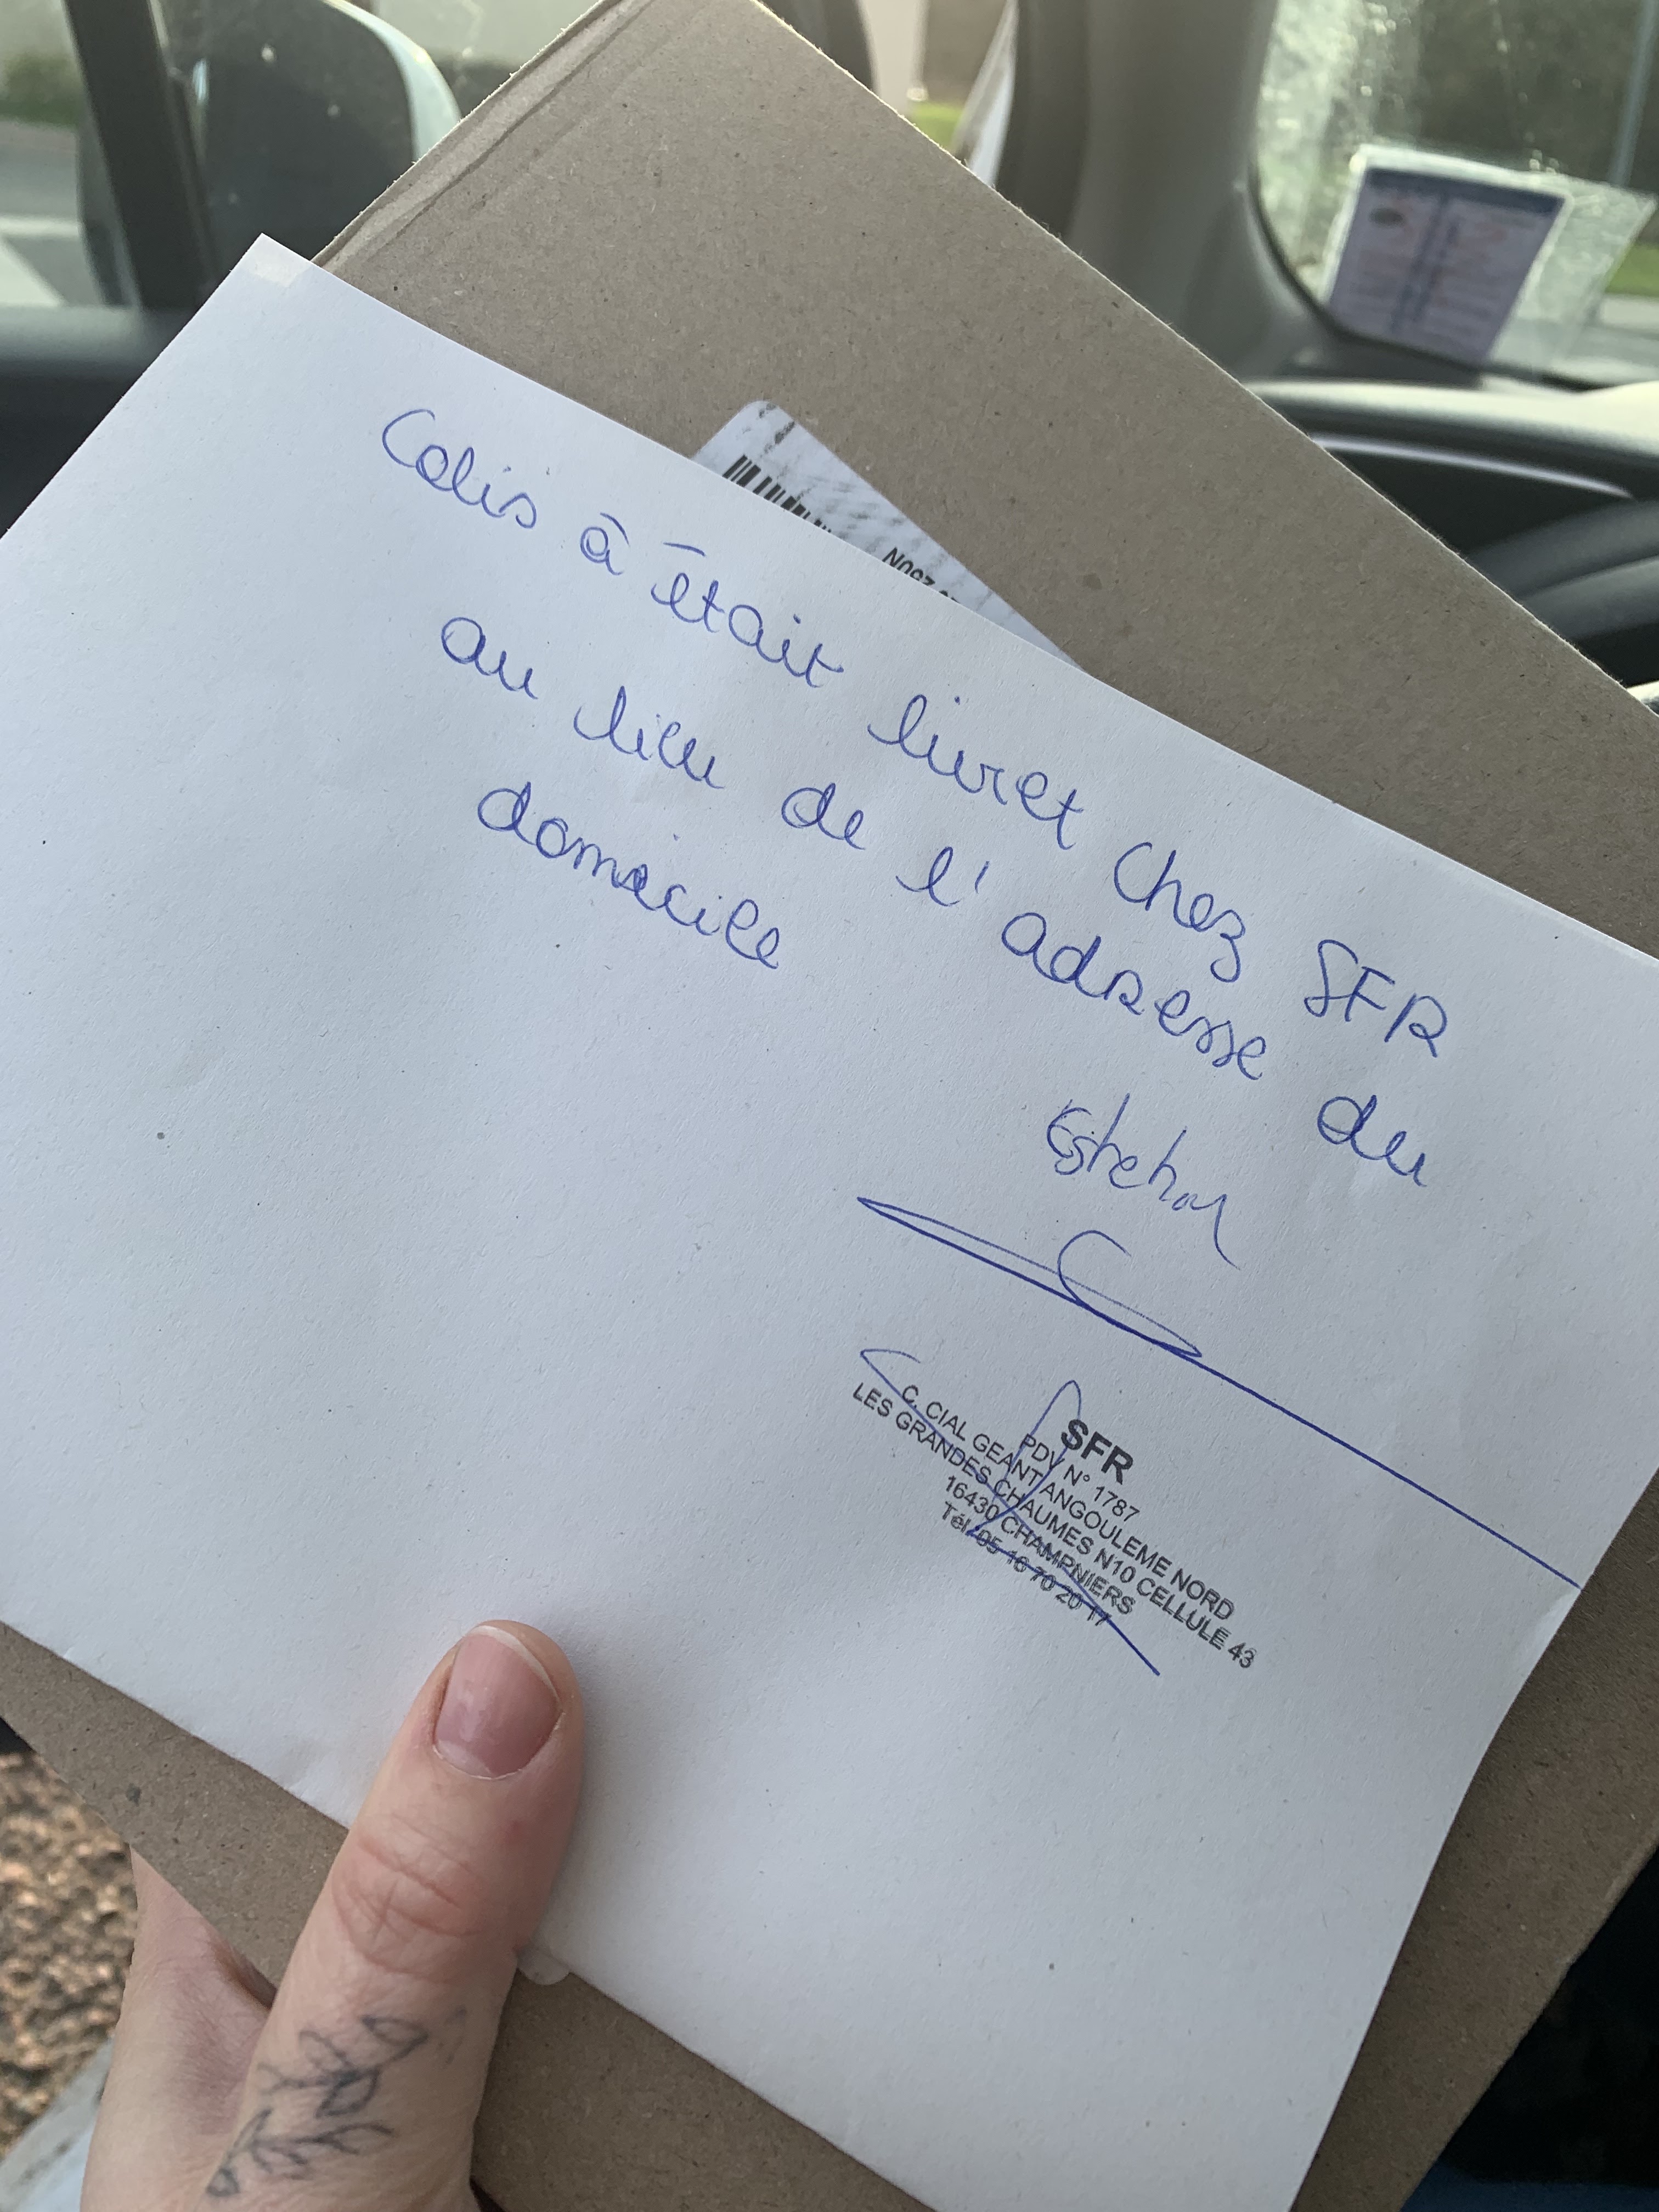 Colis à était livret chez SFR
au lieu de l'adresse du
domicile
SFR
PDV N° 1787
C. CIAL GEANT ANGOULEME NORD
LES GRANDES CHAUMES N10 CELLULE 43
16430 CHAMPNIERS
Tél. 05 16 70 20 17